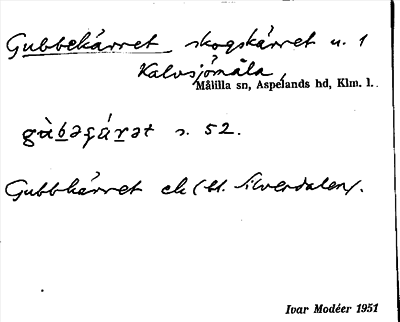 Gubbekärret, skogskärret u. 1
Kalvsjömåla,
Målilla sn, Aspelands hd, Klm. l.
s. 52.
Gubbkärret ek (bl. Silverdalen).
Ivar Modéer 1951